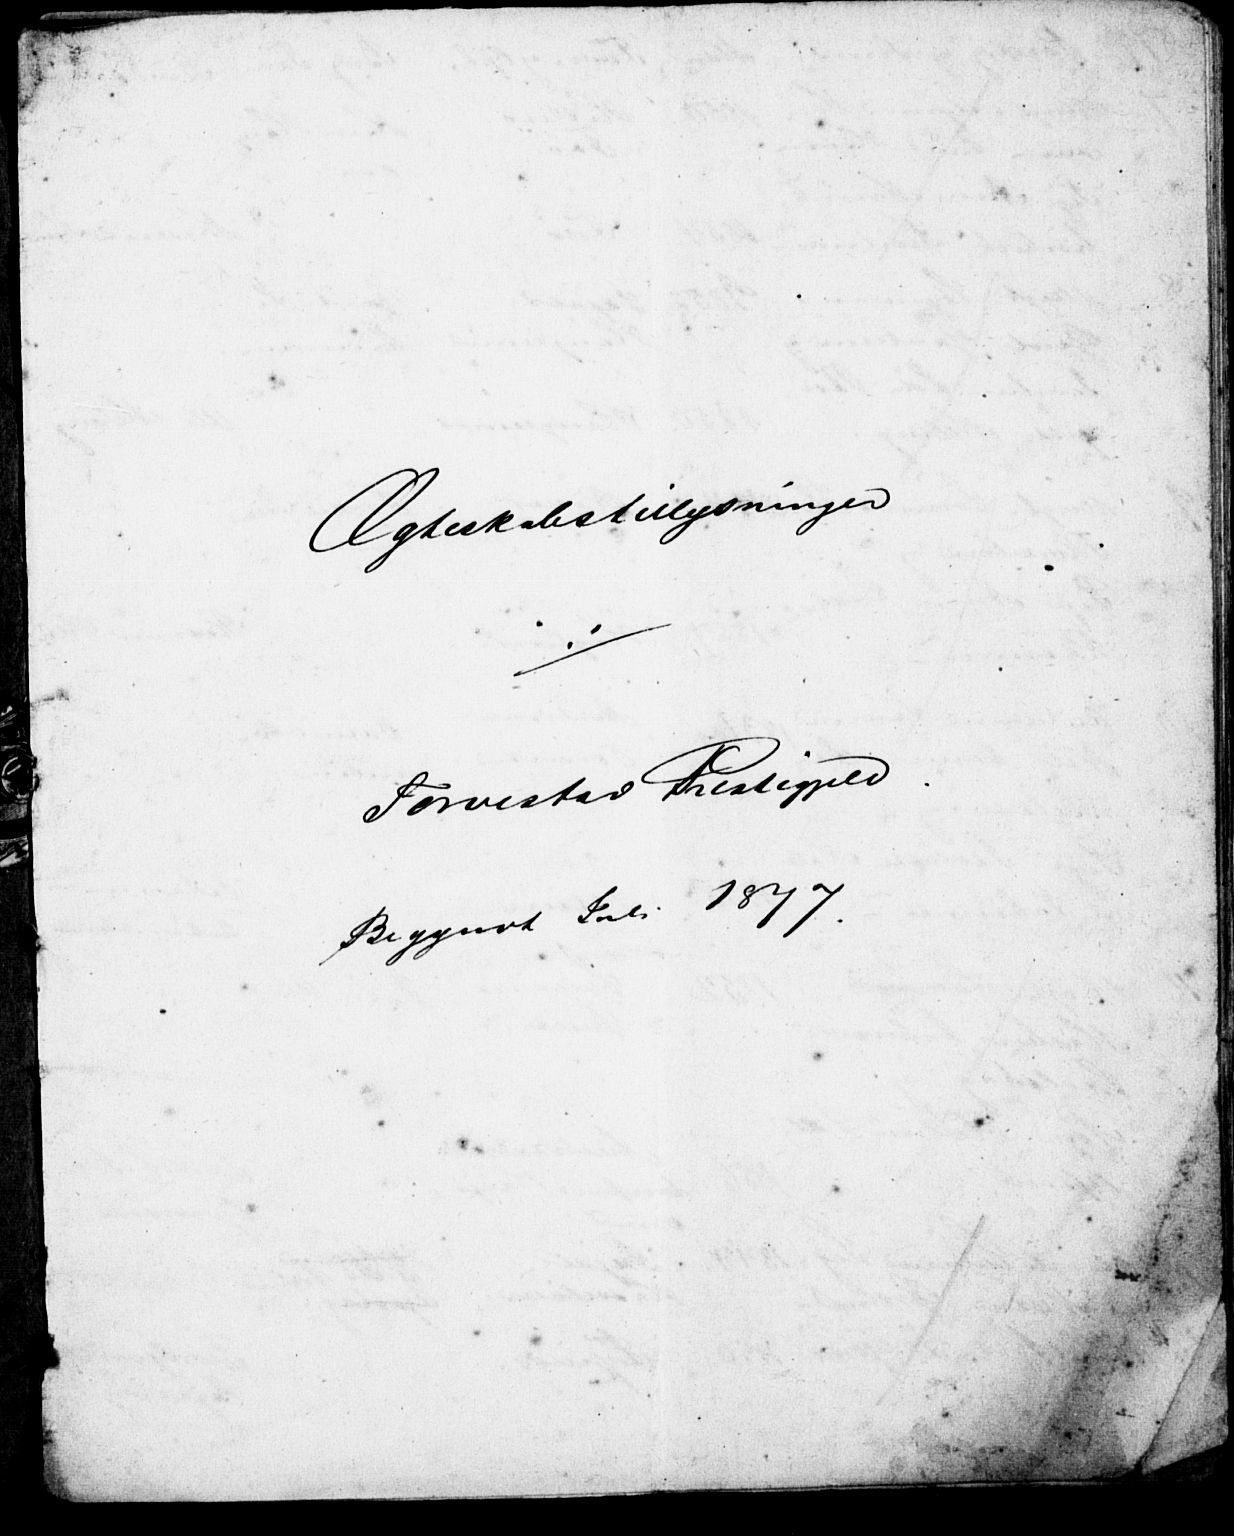 Ægteskabstillysninger
Torvestad Præstigjeld.
Begyndt Juli 1877.